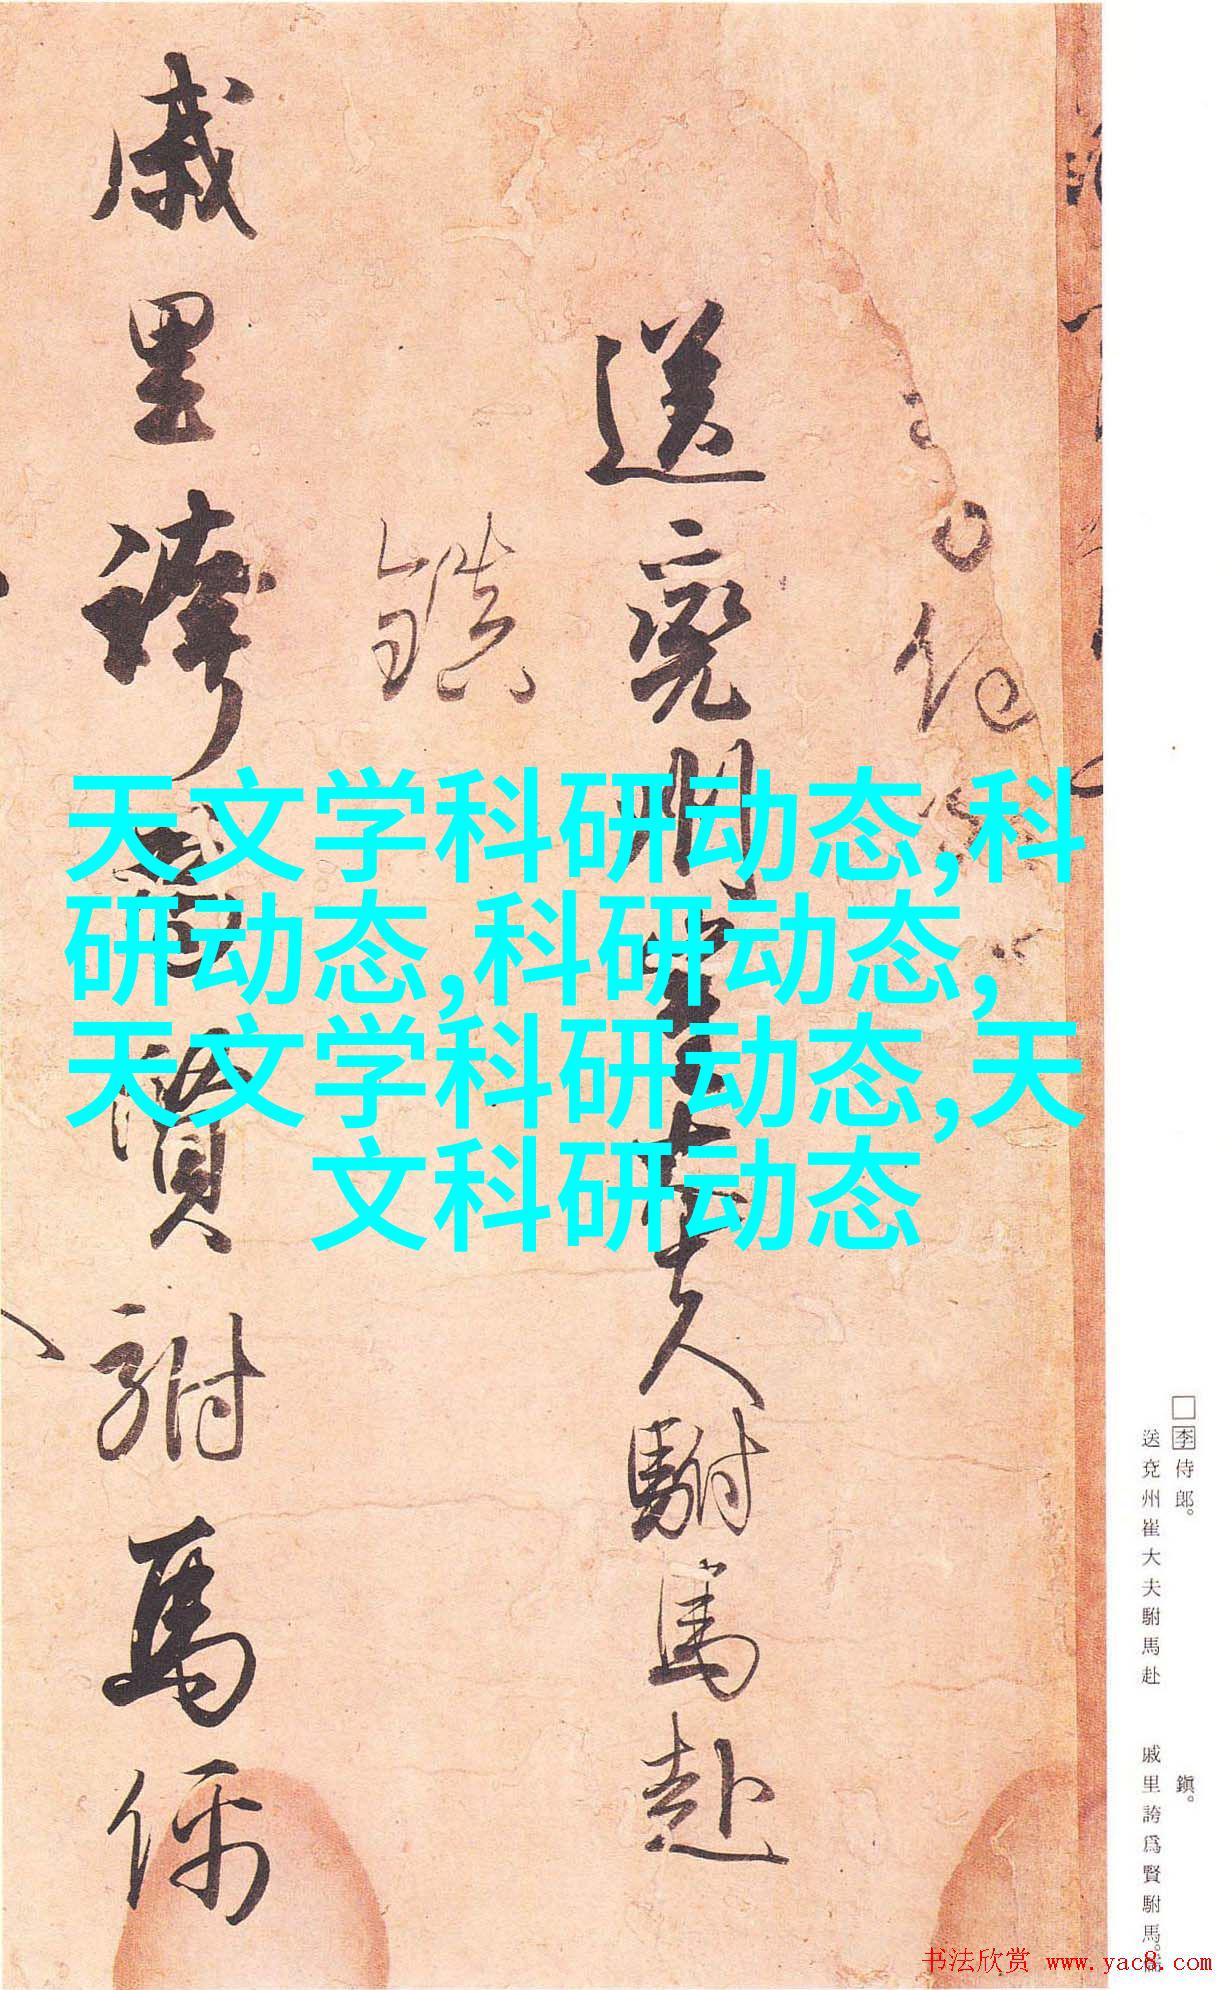 天文学科研动态,科
研动态,科研动态,
天文学科研动态,天
文科研动态
送兖州崔大夫駙馬赴
鎮
戚里誇為賢駙馬儒
□李侍郎。
送兗州崔大夫駙馬赴
鎭。
戚里誇爲賢駙馬。
书法欣赏 www.yac8.com